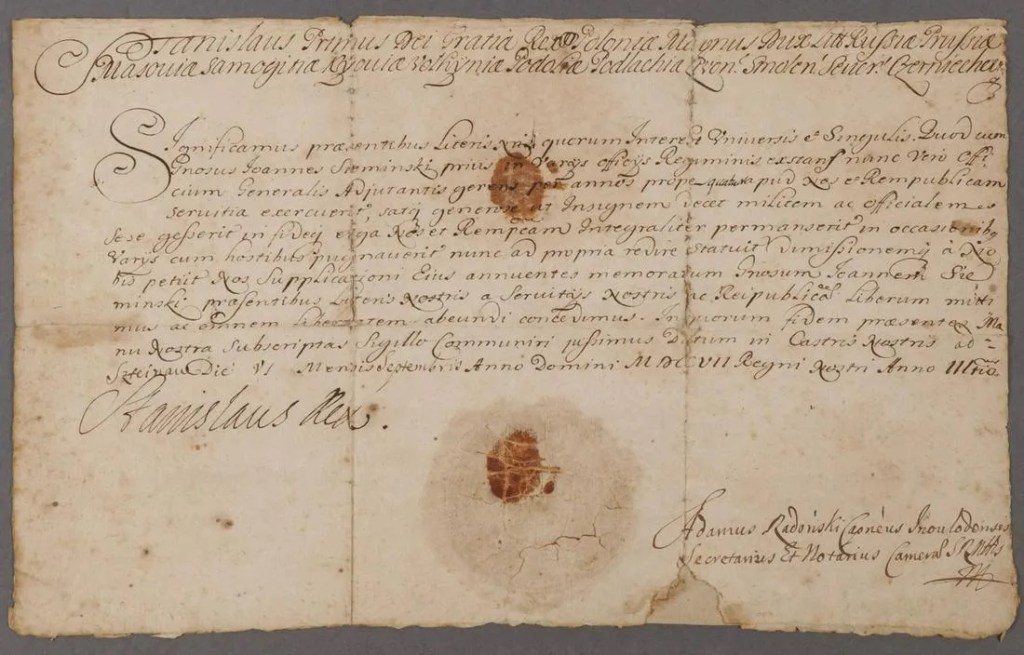 Stanislaus Primus Dei Gratia Rex Poloniæ Magnus Dux Litt Russiæ Prussiæ
Masoviæ Samogitiæ Kyoviæ Volhyniæ Podoliæ Podlachiæ Smolen. Sever. Czerniechov.
Significamus præsentibus Literis quorum Interest Universis et Singulis. Quod cum
Gnosus Joannes Sieminski prius in Varys officys Regiminis exstans nunc Vero Offi,
cium Generalis Adjutantis gerens per annos prope quatuor apud Nos et Rempublicam
Servitia exercuerit, satq generose ut Insignem decet militem ac officialem
sese gesserit in fideq erga Nos et Rempcam Integraliter permanserit in occasionibq
Varys cum hostibus pugnaverit nunc ad propria redire Statuit dimissionemq à No
bis petijt Nos Supplicationi Eius annuentes memoratum Gnosum Joannem Sie,
minski præsentibus Literis Nostris a Servitys Nostris ac Reipublicæ Liberum mitti
mus ac omnem Libertatem abeundi concedimus. In quorum fidem præsentes Ma
nu Nostra Subscriptas Sigillo Communiri jussimus Datum in Castris Nostris ad
Steinau Die VI Mensis Septembris Anno Domini MDCCVII Regni Nostri Anno III tio
Stanislaus Rex.
Adamus Radoński
Secretarius Et Notarius Cameral